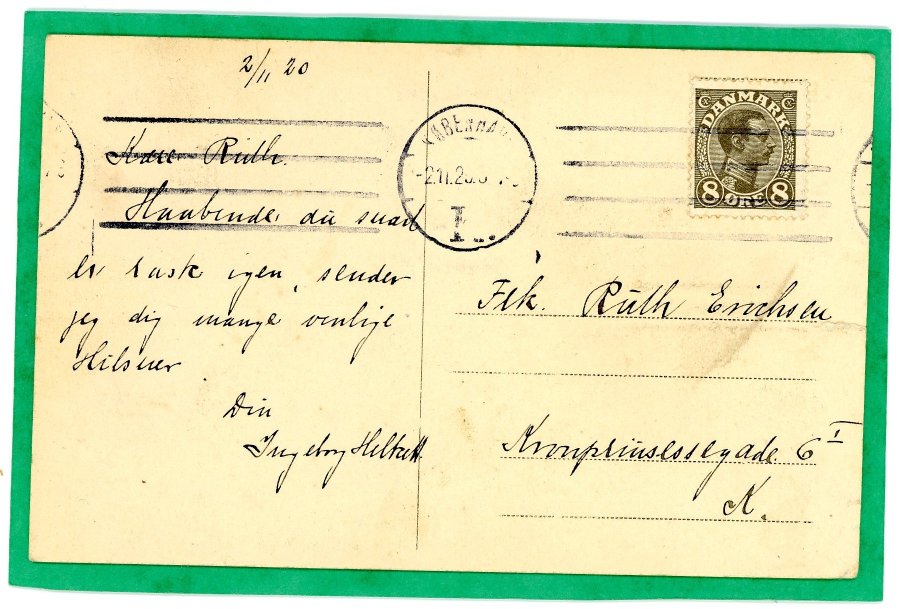 2/11 20
Kære Ruth.
Haabende, du snart
er rask igen, sender
jeg dig mange venlige
Hilsner
Din
Ingeborg
KØBENHAVN
2.11.20
DANMARK
8 ØRE 8
Frk. Ruth Erichsen
Kronprinsessegade 6 I
K.